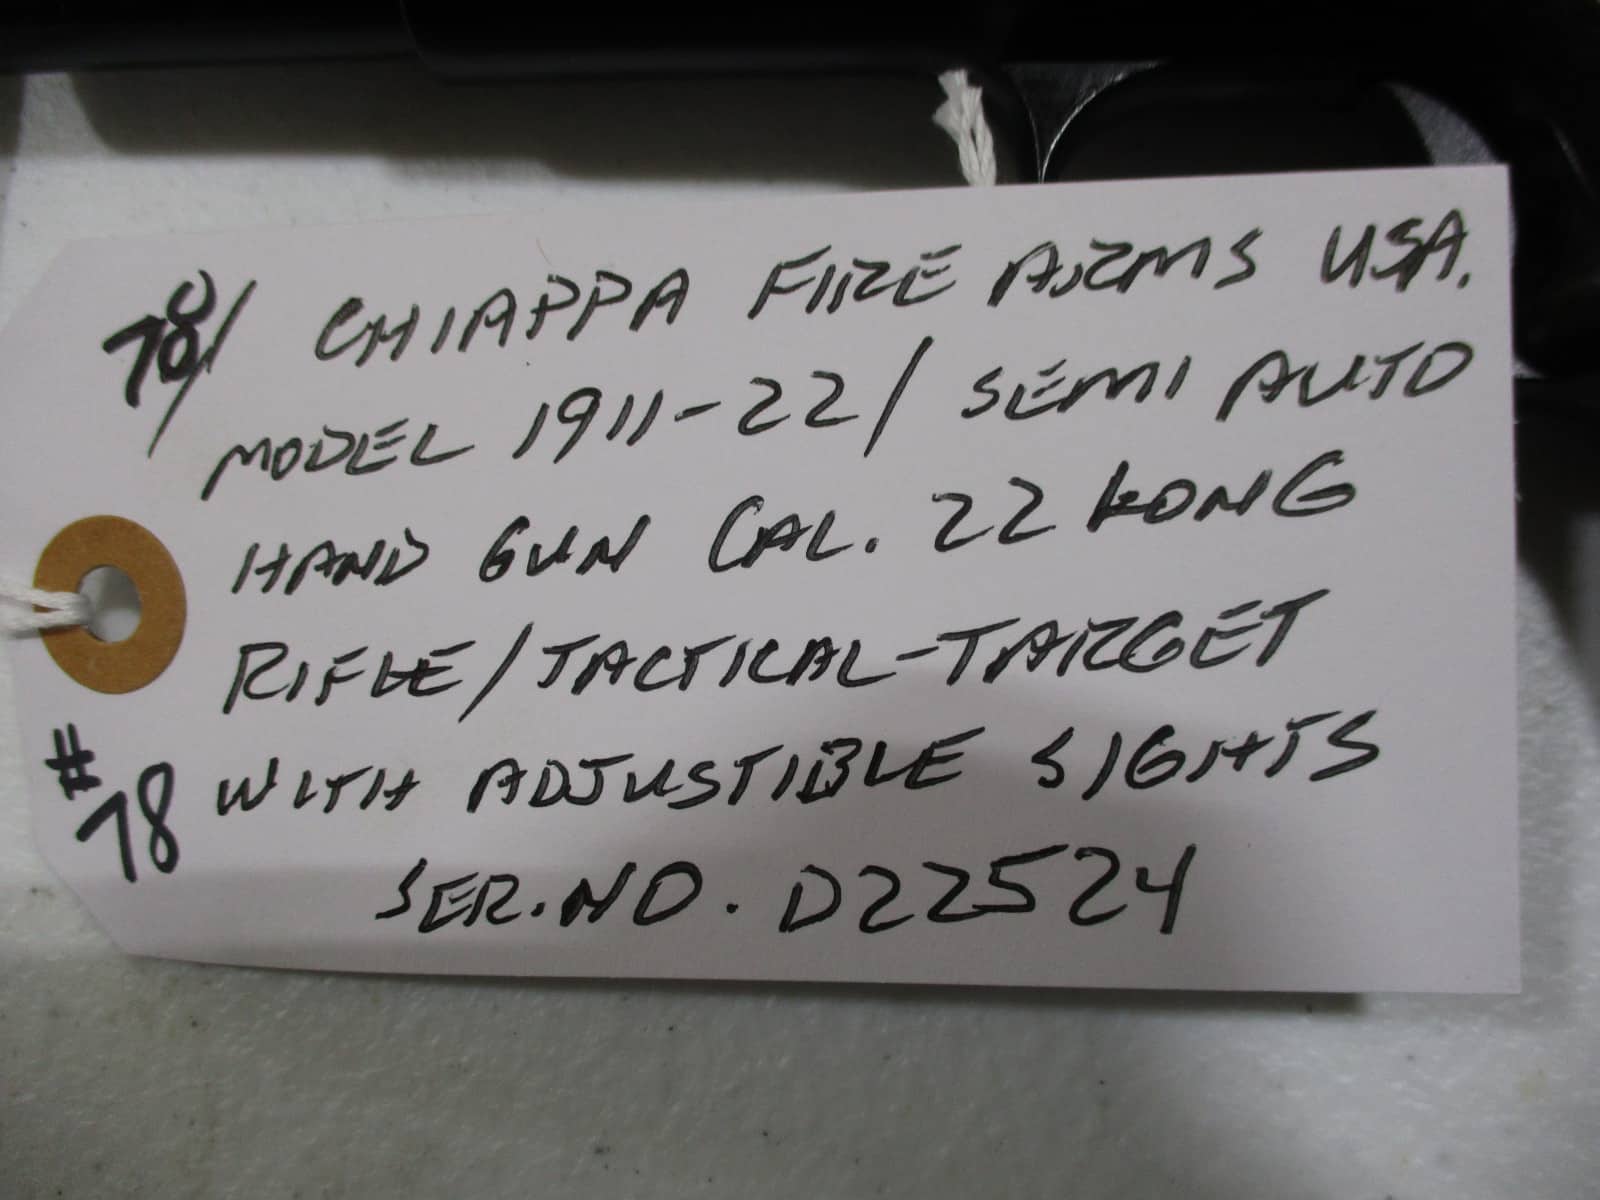 78/ CHIAPPA FIRE ARMS USA.
MODEL 1911-22/ SEMI AUTO
HAND GUN CAL. 22 LONG
RIFLE/TACTICAL-TARGET
WITH ADJUSTIBLE SIGHTS
SER.NO. D22524
#78